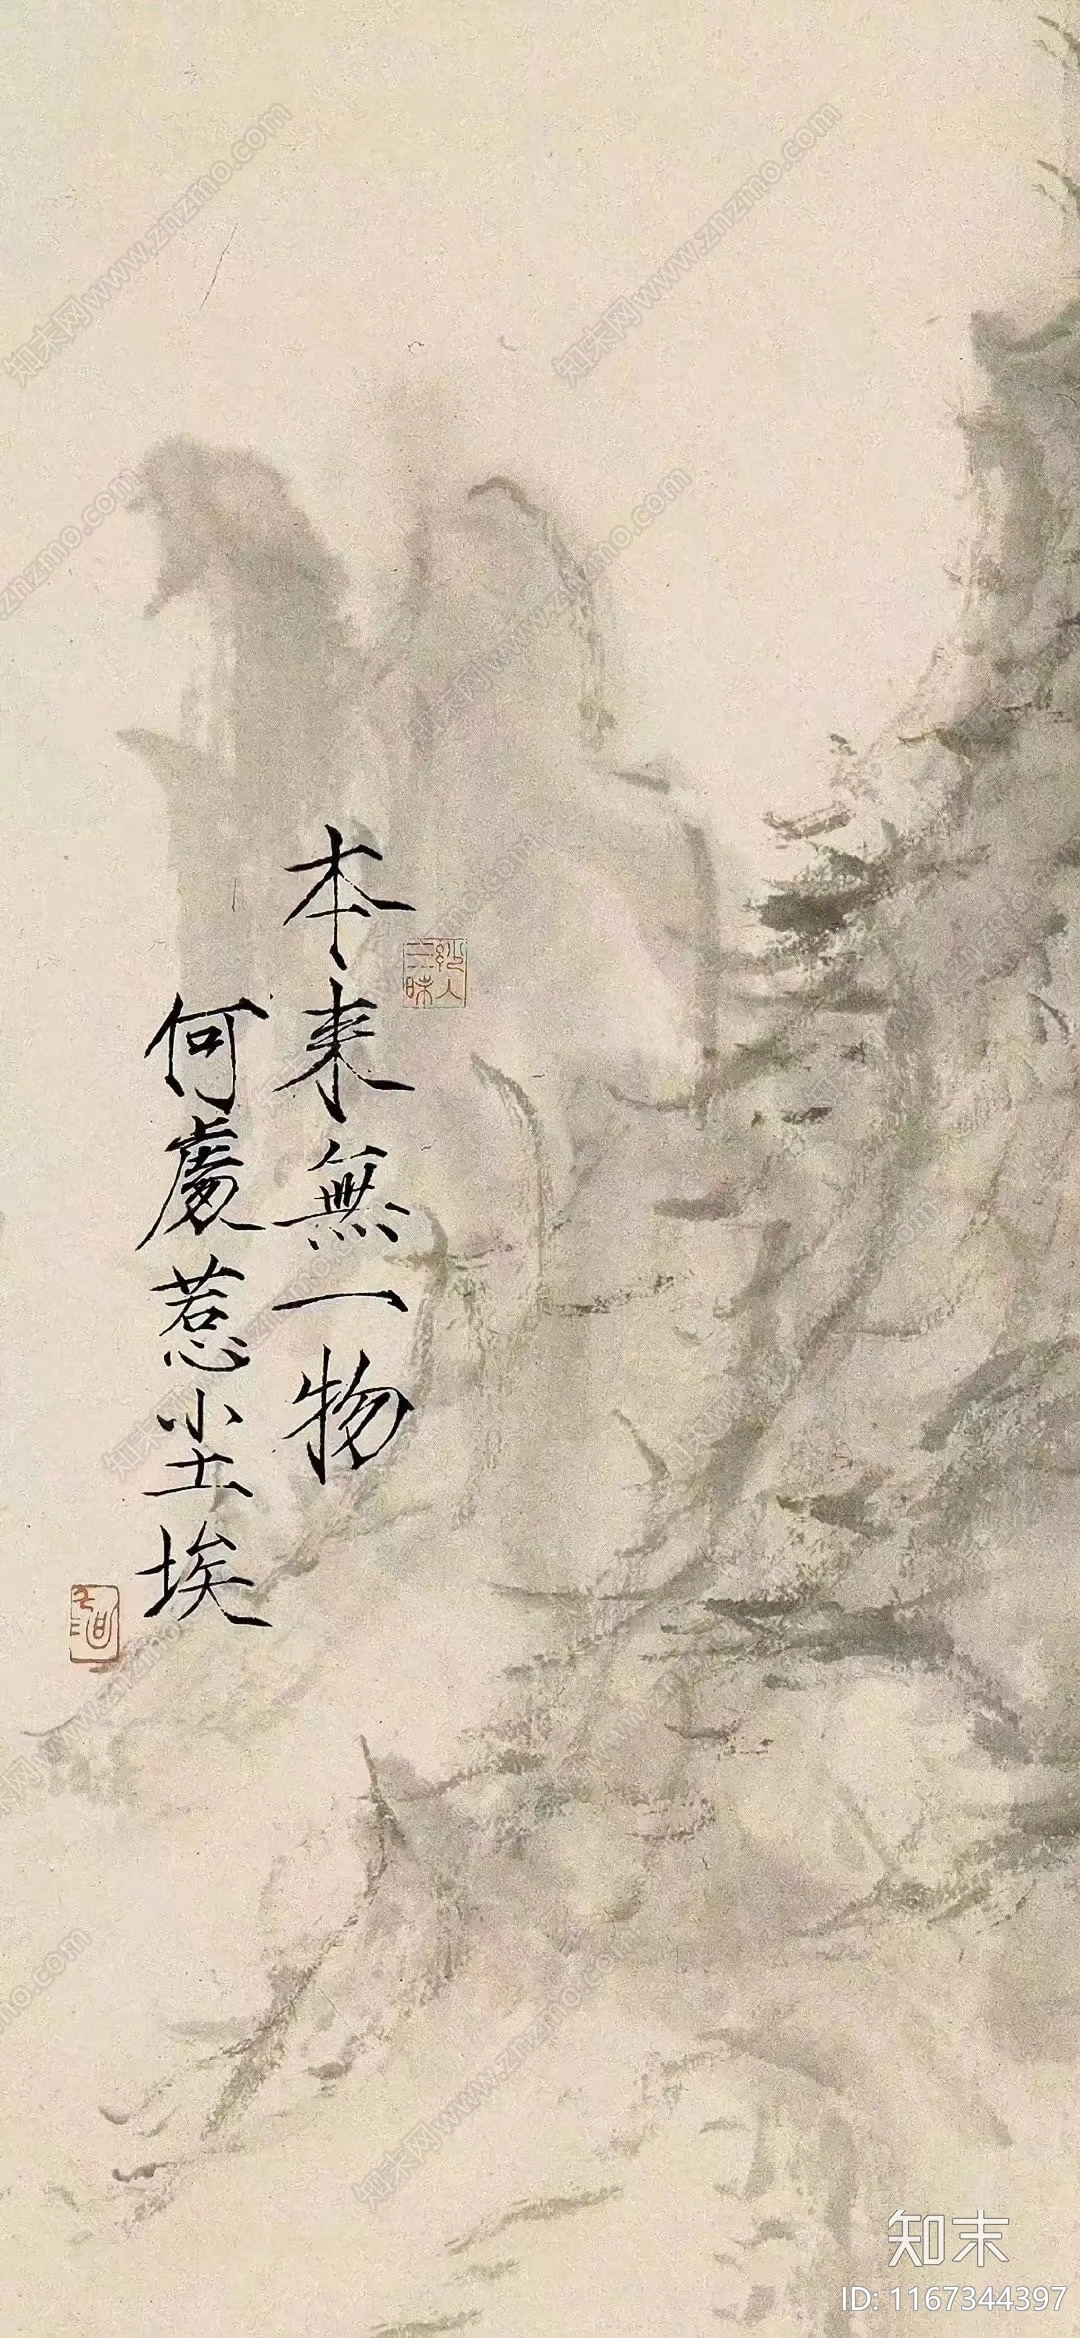 本来無一物
何處惹尘埃
知末
ID: 1167344397
知末网www.znzmo.com